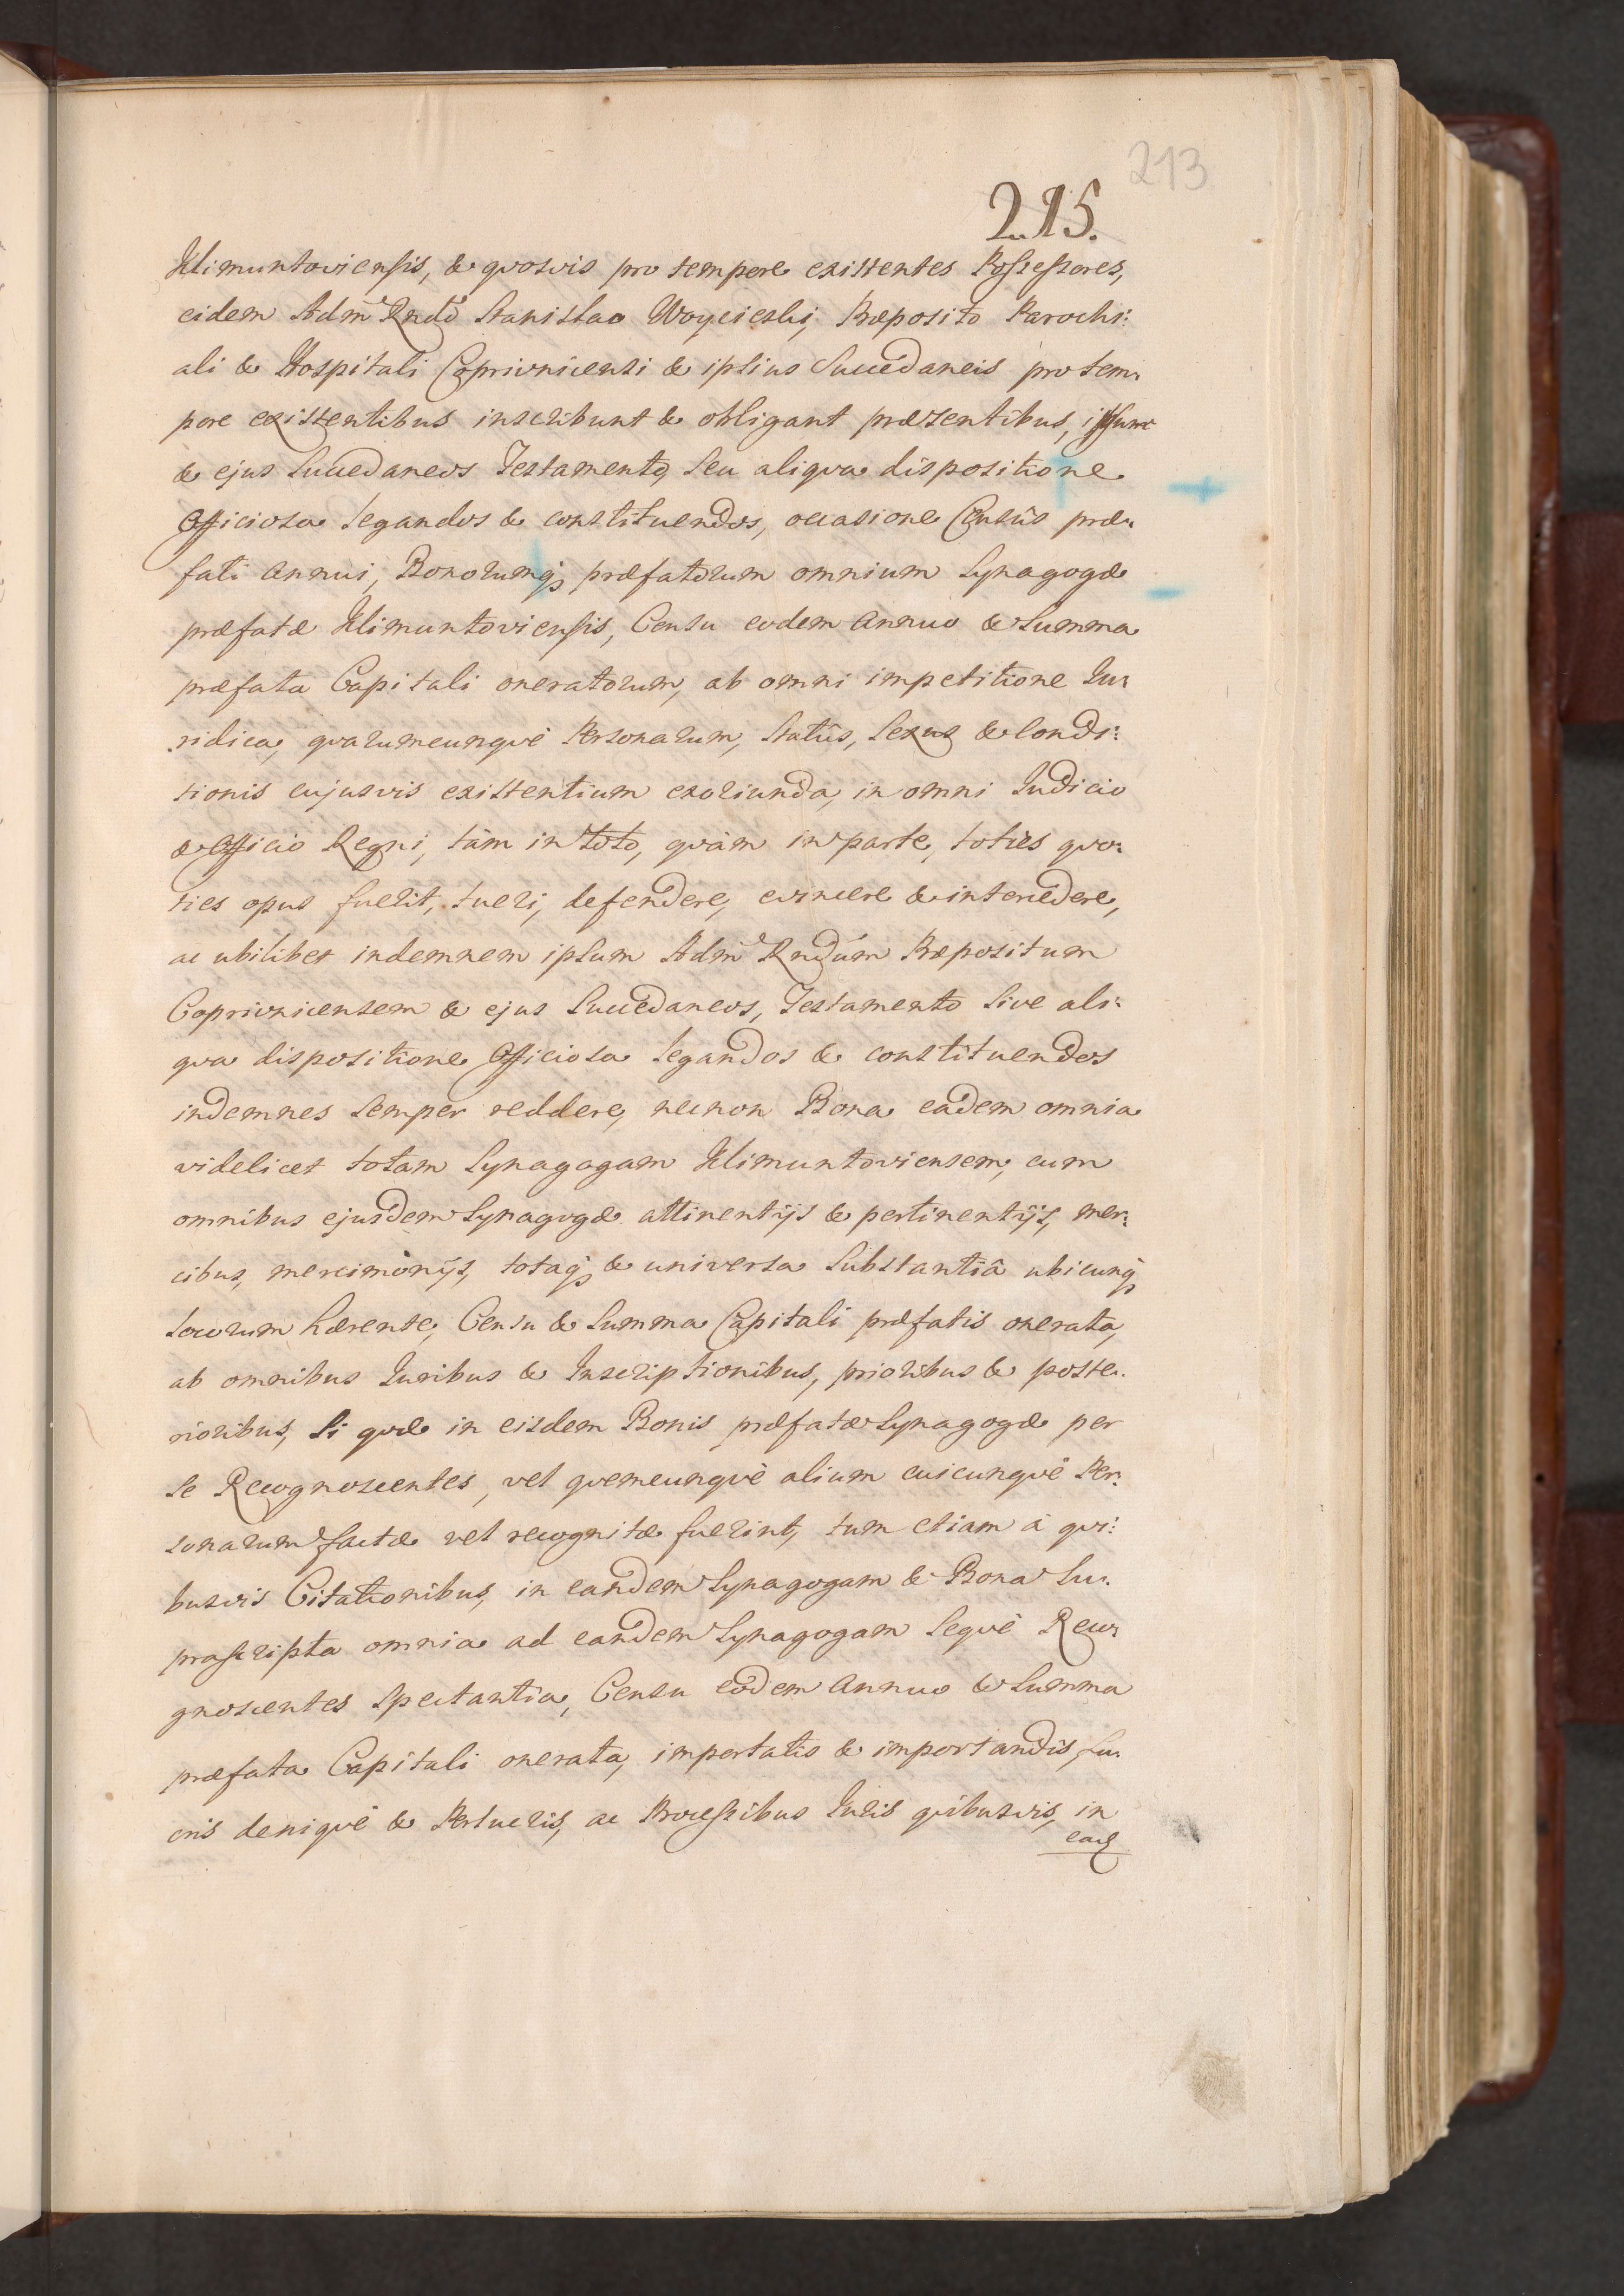 213
215.
Klimuntoviensis, & qvosvis pro tempore existentes Possessores,
eidem Adm Rndo Stanislao Woycieski, Præposito Parochi:
ali & Hospitali Coprivnicensi & ipsius Succedaneis pro tem:
pore existentibus inscribunt & obligant præsentibus, ipsum
& ejus Succedaneos Testamento, seu aliqva dispositione
Officiosa legandos & constituendos, occasione Censûs præ:
fati annui, Bonorumq; præfatorum omnium Synagogæ
præfatæ Klimuntoviensis, Censu eodem annuo & Summa
præfata Capitali oneratorum, ab omni impetitione Iu:
ridica, qvarumcunqvè Personarum, Statûs, Sexus & Condi:
tionis cujusvis existentium exoriunda, in omni Iudicio
& Officio Regni, tàm in toto, qvàm in parte, toties qvo:
ties opus fuerit, tueri, defendere, evincere & intercedere,
ac ubilibet indemnem ipsum Adm Rndum Præpositum
Coprivnicensem & ejus Succedaneos, Testamento sive ali:
qva dispositione Officiosa legandos & constituendos
indemnes semper reddere, necnon Bona eadem omnia
videlicet totam Synagogam Klimuntoviensem, cum
omnibus ejusdem Synagogæ attinentijs & pertinentijs, mer:
cibus, mercimonijs, totaq; & universa Substantiâ ubicunq;
locorum hærente, Censu & Summa Capitali præfatis onerata,
ab omnibus Iuribus & Inscriptionibus, prioribus & poste:
rioribus, si qvæ in eisdem Bonis præfatæ Synagogæ per
se Recognoscentes, vel qvemcunqvè alium cuicunqvè Per:
sonarum factæ vel recognitæ fuerint, tum etiam à qvi:
busvis Citationibus, in eandem Synagogam & Bona Su:
prascripta omnia ad eandem Synagogam Seqvè Reco:
gnoscentes spectantia, Censu eodem annuo & Summa
præfata Capitali onerata, importatis & importandis, Lu:
cris deniqvè & Perlucris, ac Processibus Iuris qvibusvis, in
ead